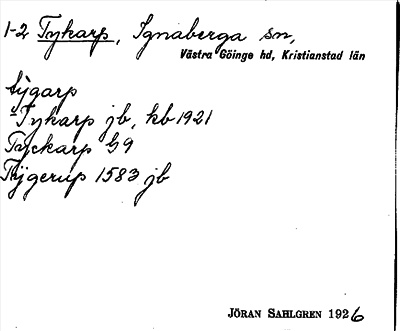 1-2 Tykarp, Ignaberga sn,
Västra Göinge hd, Kristianstad län
týgarp
Tykarp jb, kb 1921
Tyckarp G9
Tÿgerup 1583 jb
JÖRAN SAHLGREN 1926